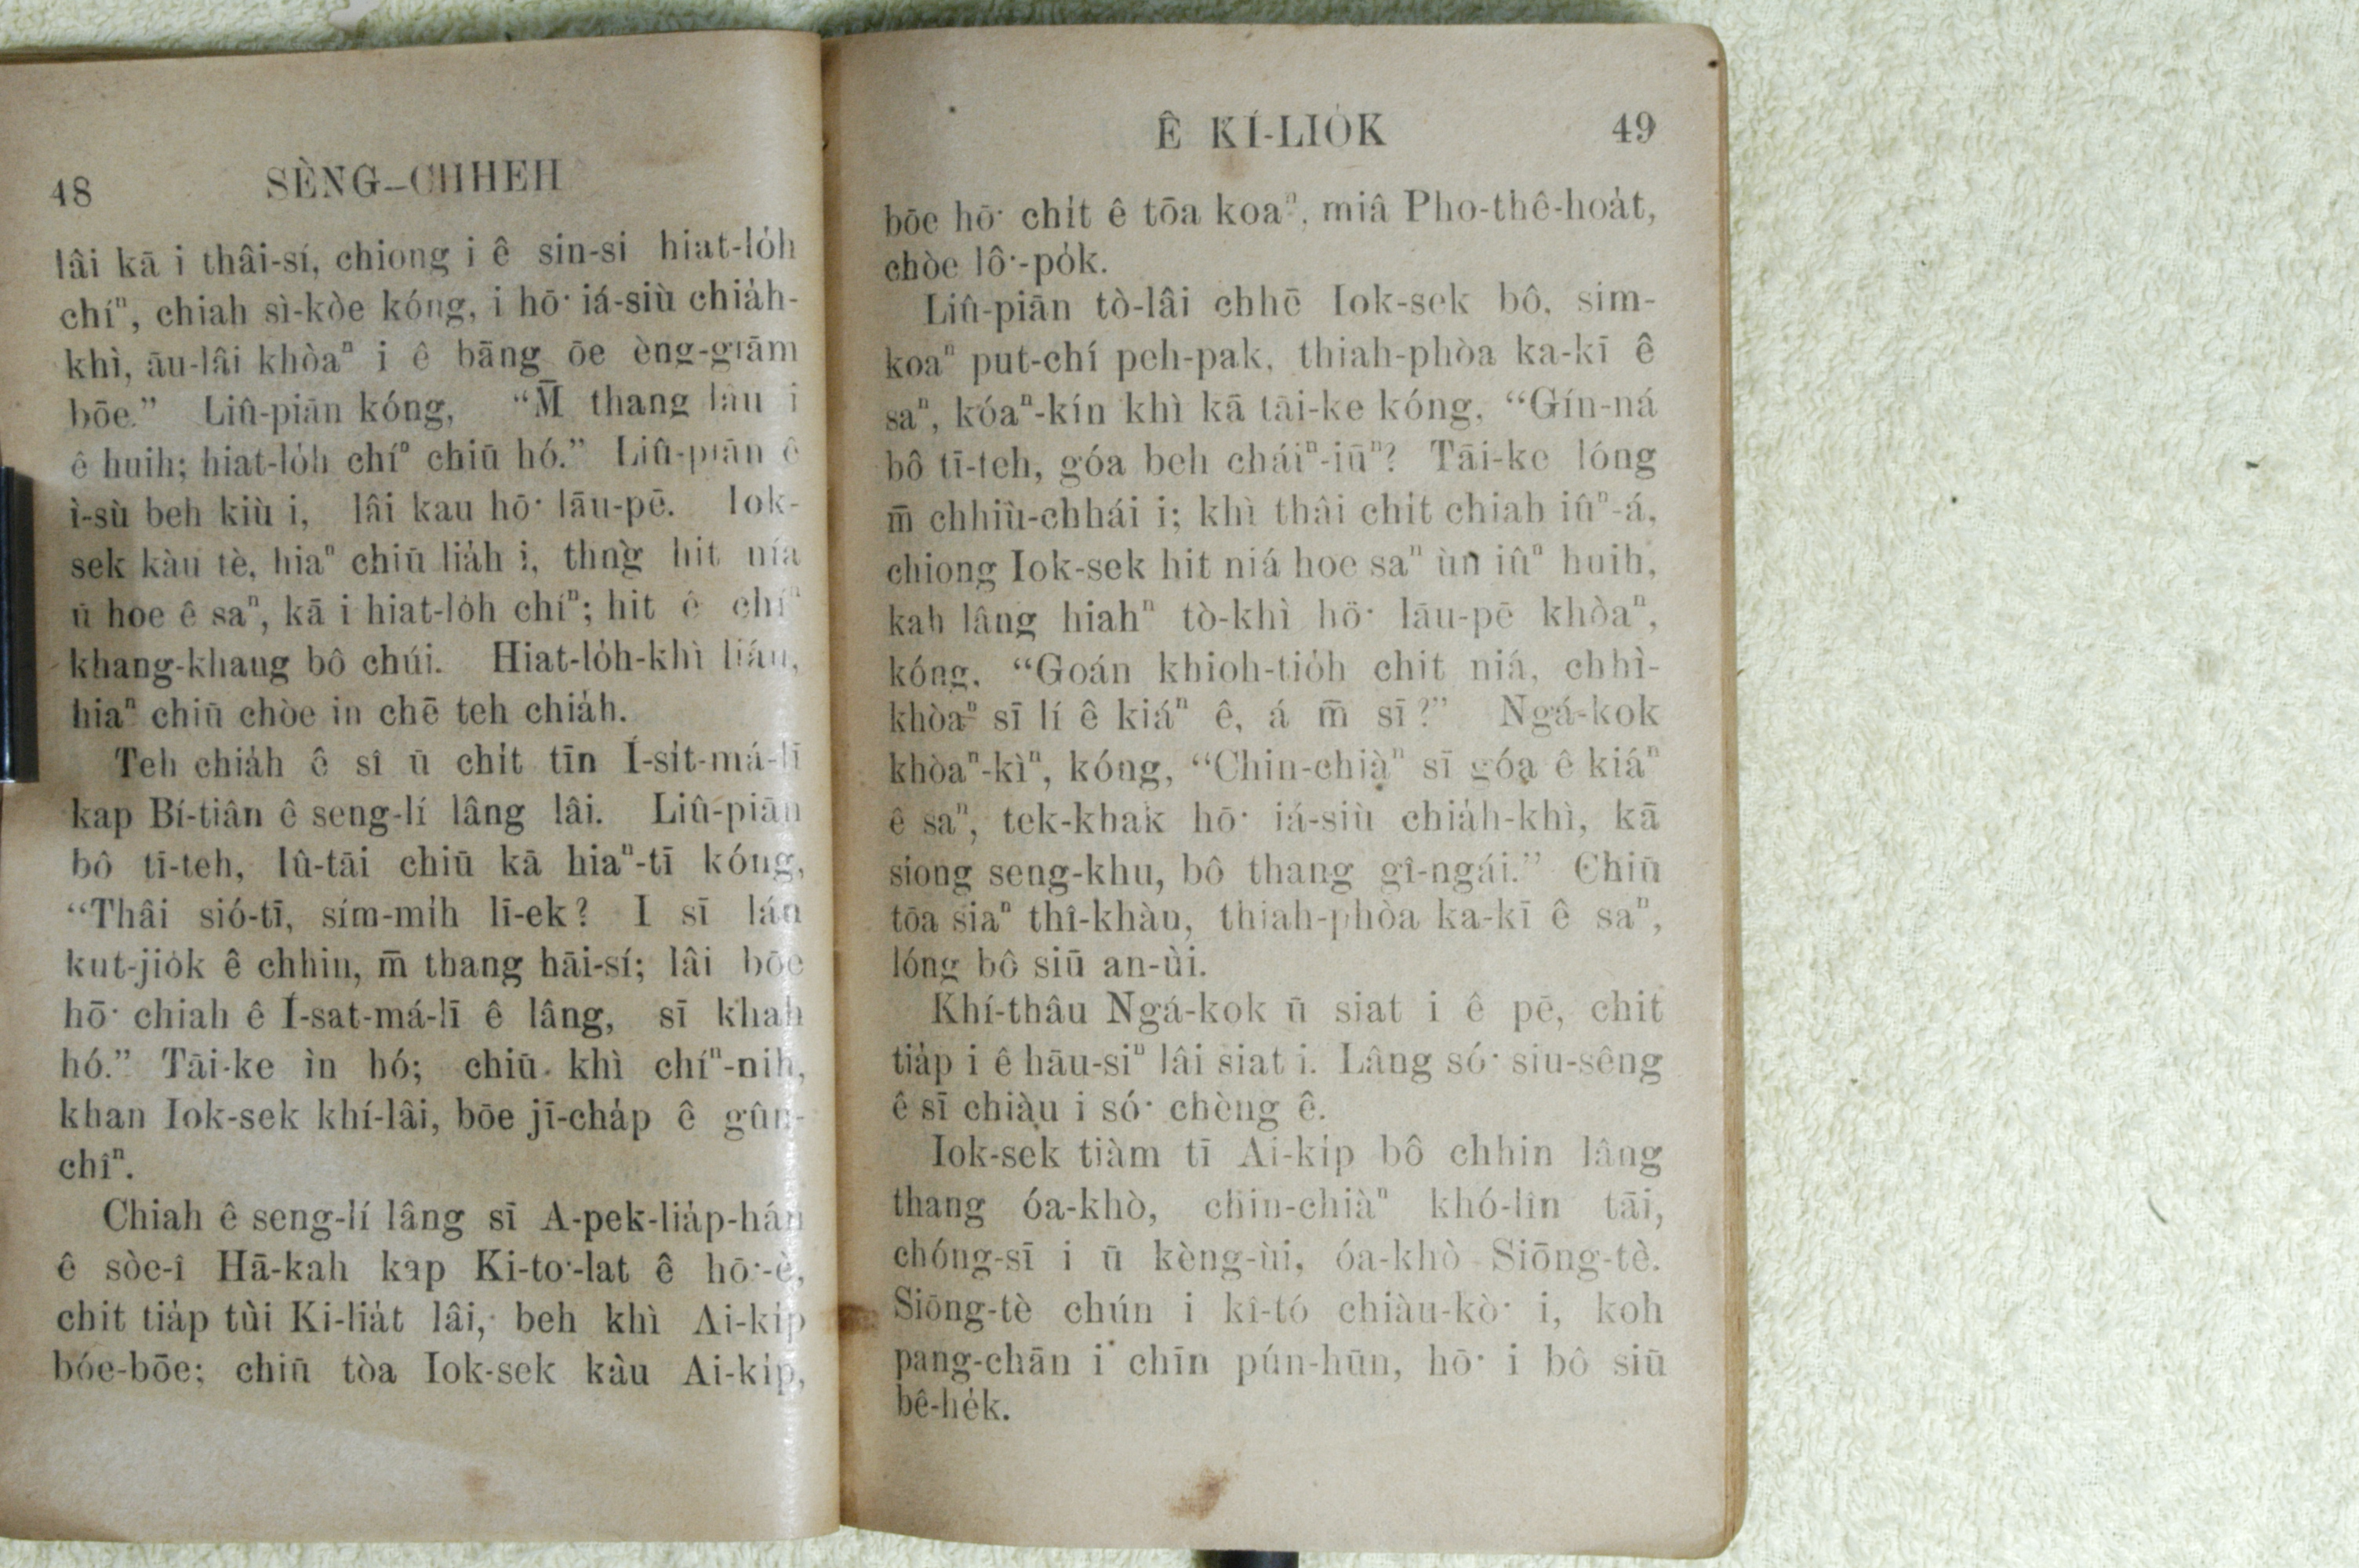 48 SÈNG-CHHEH
lâi kā i thâi-sí, chiong i ê sin-si hiat-lo̍h
chíⁿ, chiah sì-kòe kóng, i hō͘ iá-siù chia̍h-
khì, āu-lâi khòaⁿ i ê bāng ōe èng-giām
bōe.” Liû-piān kóng, “M̄ thang lâu i
ê huih; hiat-lo̍h chíⁿ chiū hó.” Liû-piān ê
ì-sù beh kiù i, lâi kau hō͘ lāu-pē. Iok-
sek kàu tè, hiaⁿ chiū lia̍h i, thǹg hit niá
ū hoe ê saⁿ, kā i hiat-lo̍h chíⁿ; hit ê chíⁿ
khang-khang bô chúi. Hiat-lo̍h-khì liáu,
hiaⁿ chiū chòe in chē teh chia̍h.
Teh chia̍h ê sî ū chi̍t tīn Í-si̍t-má-lī
kap Bí-tiân ê seng-lí lâng lâi. Liû-piān
bô tī-teh, Iû-tāi chiū kā hiaⁿ-tī kóng,
“Thâi sió-tī, sím-mi̍h lī-ek? I sī lán
kut-jio̍k ê chhin, m̄ thang hāi-sí; lâi bōe
hō͘ chiah ê Í-sat-má-lī ê lâng, sī khah
hó.” Tāi-ke ìn hó; chiū khì chíⁿ-nih,
khan Iok-sek khí-lâi, bōe jī-cha̍p ê gûn-
chîⁿ.
Chiah ê seng-lí lâng sī A-pek-lia̍p-hán
ê sòe-î Hā-kah kap Ki-to͘-lat ê hō͘-è,
chit tia̍p tùi Ki-lia̍t lâi, beh khì Ai-ki̍p
bóe-bōe; chiū tòa Iok-sek kàu Ai-ki̍p,
Ê KÍ-LIO̍K 49
bōe hō͘ chi̍t ê tōa koaⁿ, miâ Pho-thê-hoa̍t,
chòe lô͘-po̍k.
Liû-piān tò-lâi chhē Iok-sek bô, sim-
koaⁿ put-chí peh-pak, thiah-phòa ka-kī ê
saⁿ, kóaⁿ-kín khì kā tāi-ke kóng, “Gín-ná
bô tī-teh, góa beh cháiⁿ-iūⁿ? Tāi-ke lóng
m̄ chhiù-chhái i; khì thâi chi̍t chiah iûⁿ-á,
chiong Iok-sek hit niá hoe saⁿ ùn iûⁿ huih,
kah lâng hiahⁿ tò-khì hō͘ lāu-pē khòaⁿ,
kóng, “Goán khioh-tio̍h chit niá, chhì-
khòaⁿ sī lí ê kiáⁿ ê, á m̄ sī?” Ngá-kok
khòaⁿ-kìⁿ, kóng, “Chin-chiàⁿ sī góa ê kiáⁿ
ê saⁿ, tek-khak hō͘ iá-siù chia̍h-khì, kā
siong seng-khu, bô thang gî-ngái.” Chiū
tōa siaⁿ thî-khàu, thiah-phòa ka-kī ê saⁿ,
lóng bô siū an-ùi.
Khí-thâu Ngá-kok ū siat i ê pē, chit
tia̍p i ê hāu-siⁿ lâi siat i. Lâng só͘ siu-sêng
ê sī chiàu i só͘ chèng ê.
Iok-sek tiàm tī Ai-ki̍p bô chhin lâng
thang óa-khò, chin-chiàⁿ khó-lîn tāi,
chóng-sī i ū kèng-ùi, óa-khò Siōng-tè.
Siōng-tè chún i kî-tó chiàu-kò͘ i, koh
pang-chān i chīn pún-hūn, hō͘ i bô siū
bê-he̍k.